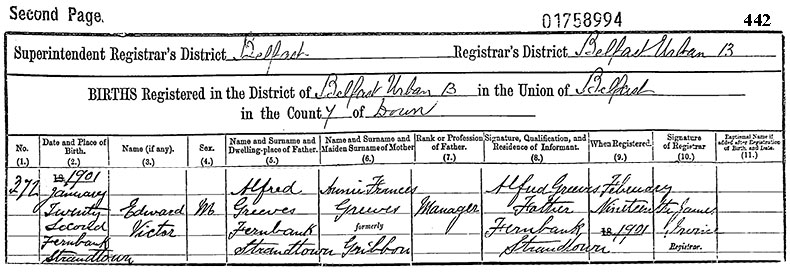 Second Page.
01758994
442
Superintendent Registrar's District Belfast Registrar's District Belfast Urban B
BIRTHS Registered in the District of Belfast Urban B in the Union of Belfast
in the County of Down
No. (1.)
Date and Place of Birth. (2.)
Name (if any). (3.)
Sex. (4.)
Name and Surname and Dwelling-place of Father. (5.)
Name and Surname and Maiden Surname of Mother (6.)
Rank or Profession of Father. (7.)
Signature, Qualification, and Residence of Informant. (8.)
When Registered. (9.)
Signature of Registrar (10.)
Baptismal Name if added after Registration of Birth, and Date. (11.)
272
18 1901
January
Twenty
Second
Fernbank
Strandtown
Edward
Victor
M
Alfred
Greeves
Fernbank
Strandtown
Annie Frances
Greeves
formerly
Gribbon
Manager
Alfred Greeves
Father
Fernbank
Strandtown
February
Nineteenth
18 1901
James
Irvine
Registrar.